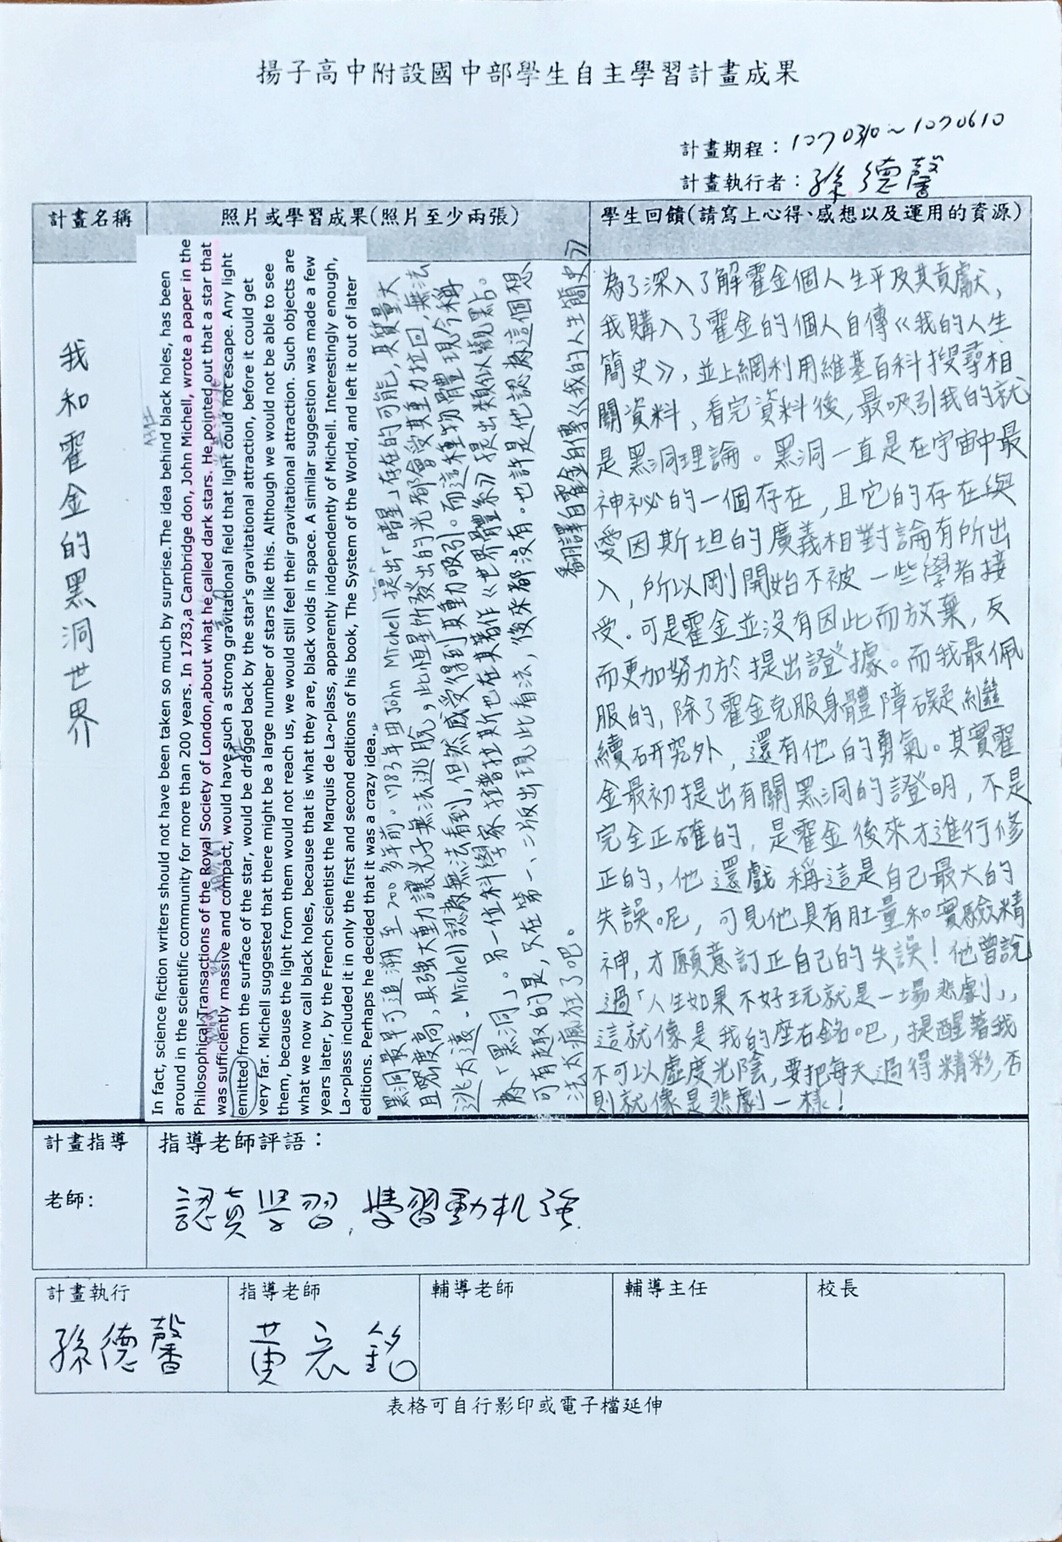 揚子高中附設國中部學生自主學習計畫成果
計畫期程：1070310～1070610
計畫執行者：孫德馨
計畫名稱
照片或學習成果(照片至少兩張)
學生回饋(請寫上心得、感想以及運用的資源)
我和霍金的黑洞世界
In fact, science fiction writers should not have been taken so much by surprise.The idea behind black holes, has been
around in the scientific community for more than 200 years. In 1783,a Cambridge don, John Michell, wrote a paper in the
Philosophical Transactions of the Royal Society of London,about what he called dark stars. He pointed out that a star that
was sufficiently massive and compact, would have such a strong gravitational field that light could not escape. Any light
emitted from the surface of the star, would be dragged back by the star's gravitational attraction, before it could get
very far. Michell suggested that there might be a large number of stars like this. Although we would not be able to see
them, because the light from them would not reach us, we would still feel their gravitational attraction. Such objects are
what we now call black holes, because that is what they are, black voids in space. A similar suggestion was made a few
years later, by the French scientist the Marquis de La~plass, apparently independently of Michell. Interestingly enough,
La~plass included it in only the first and second editions of his book, The System of the World, and left it out of later
editions. Perhaps he decided that it was a crazy idea.
黑洞最早可追溯至200多年前。1783年由John Michell提出「暗星」存在的可能，其質量大
且密度高，具強大動力讓光子無法逃脫，此恆星所發出的光都會受其重力拉回，無法
逃太遠。Michell認為無法看到，但仍然感受得到其動吸引。而這種物體現今稱
為「黑洞」。另一位科學家拉普拉斯也在其著作《世界體系》初提出類似觀點。
可有趣的是，只在第一、二版出現此看法，後來都沒有。也許是他認為這個想
法太瘋狂了吧。
翻譯自霍金自傳《我的人生簡史》
為了深入了解霍金個人生平及其貢獻，
我購入了霍金的個人自傳《我的人生
簡史》，並上網利用維基百科搜尋相
關資料，看完資料後，最吸引我的就
是黑洞理論。黑洞一直是在宇宙中最
神祕的一個存在，且它的存在與
愛因斯坦的廣義相對論有所出
入，所以剛開始不被一些學者接
受。可是霍金並沒有因此而放棄，反
而更加努力於提出證據。而我最佩
服的，除了霍金克服身體障礙繼
續研究外，還有他的勇氣。其實霍
金最初提出有關黑洞的證明，不是
完全正確的，是霍金後來才進行修
正的，他還戲稱這是自己最大的
失誤呢，可見他具有肚量和實驗精
神，才願意訂正自己的失誤！他曾說
過「人生如果不好玩就是一場悲劇」，
這就像是我的座右銘吧，提醒著我
不可以虛度光陰，要把每天過得精彩，否
則就像是悲劇一樣！
計畫指導
老師:
指導老師評語：
認真學習，學習動机強.
計畫執行
指導老師
輔導老師
輔導主任
校長
孫德馨
黃宏銘
表格可自行影印或電子檔延伸